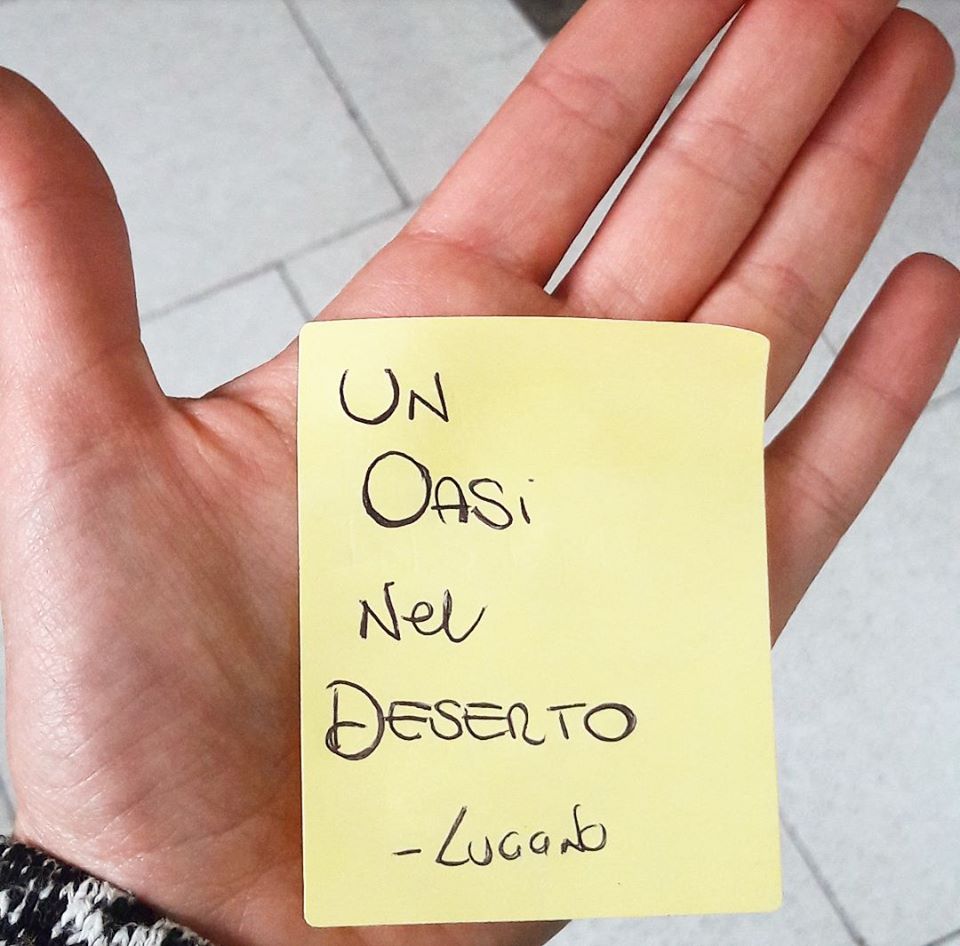 UN
OASi
Nel
DESERTO
- LUGANO